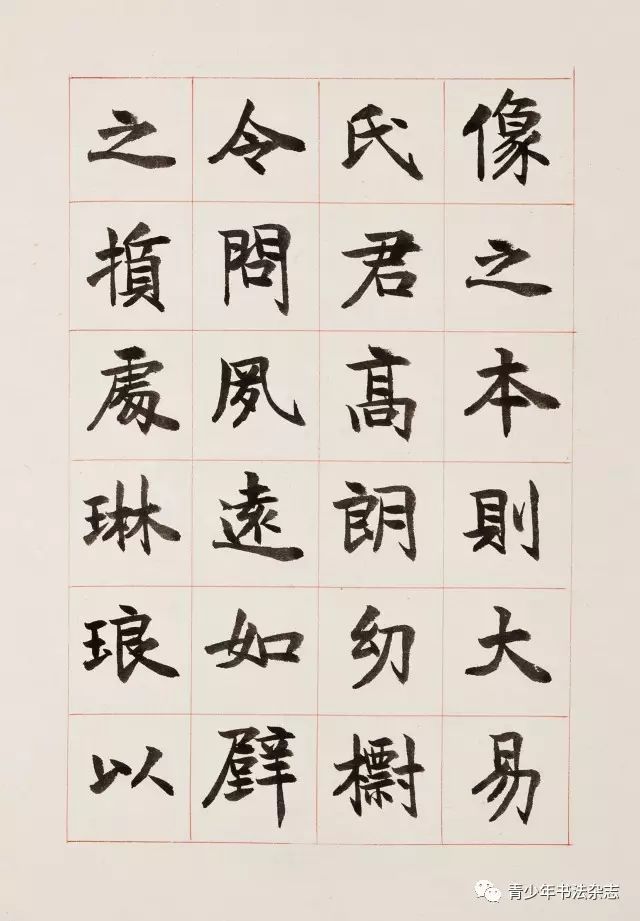 像之本則大易
氏君髙朗幼
令問夙遠如璧
之損處琳琅以
青少年书法杂志